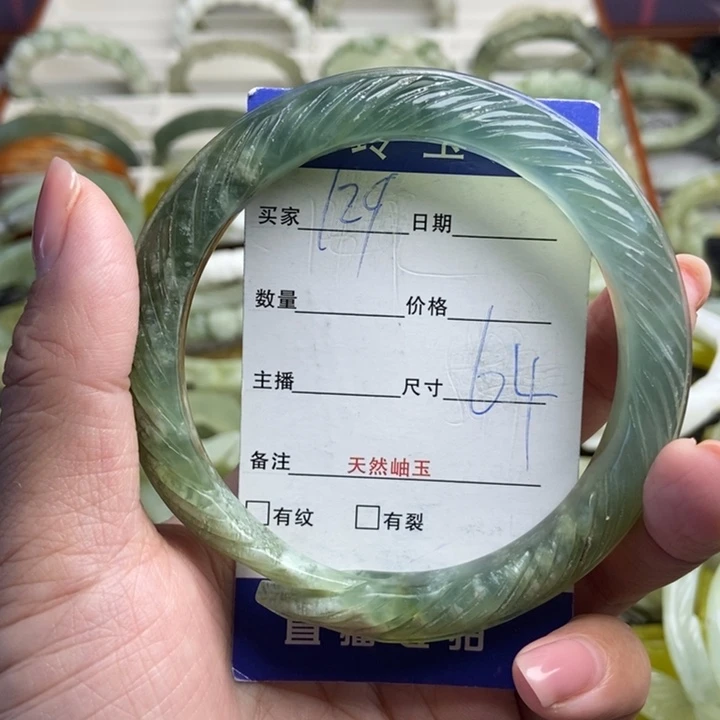 玉
买家 129 日期
数量 价格
主播 尺寸 64
备注 天然岫玉
□有纹 □有裂
直播